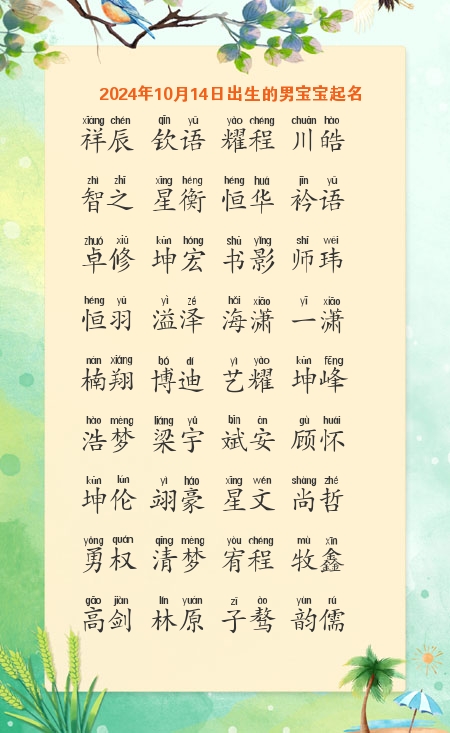 2024年10月14日出生的男宝宝起名
xiáng chén qīn yǔ yào chéng chuān hào
祥辰 钦语 耀程 川皓
zhì zhī xīng héng héng huá jīn yǔ
智之 星衡 恒华 衿语
zhuó xiū kūn hóng shū yǐng shī wěi
卓修 坤宏 书影 师玮
héng yǔ yì zé hǎi xiāo yī xiāo
恒羽 溢泽 海潇 一潇
nán xiáng bó dí yì yào kūn fēng
楠翔 博迪 艺耀 坤峰
hào mèng liáng yǔ bīn ān gù huái
浩梦 梁宇 斌安 顾怀
kūn lún yì háo xīng wén shàng zhé
坤伦 翊豪 星文 尚哲
yǒng quán qīng mèng yòu chéng mù xīn
勇权 清梦 宥程 牧鑫
gāo jiàn lín yuán zǐ ào yùn rú
高剑 林原 子骜 韵儒